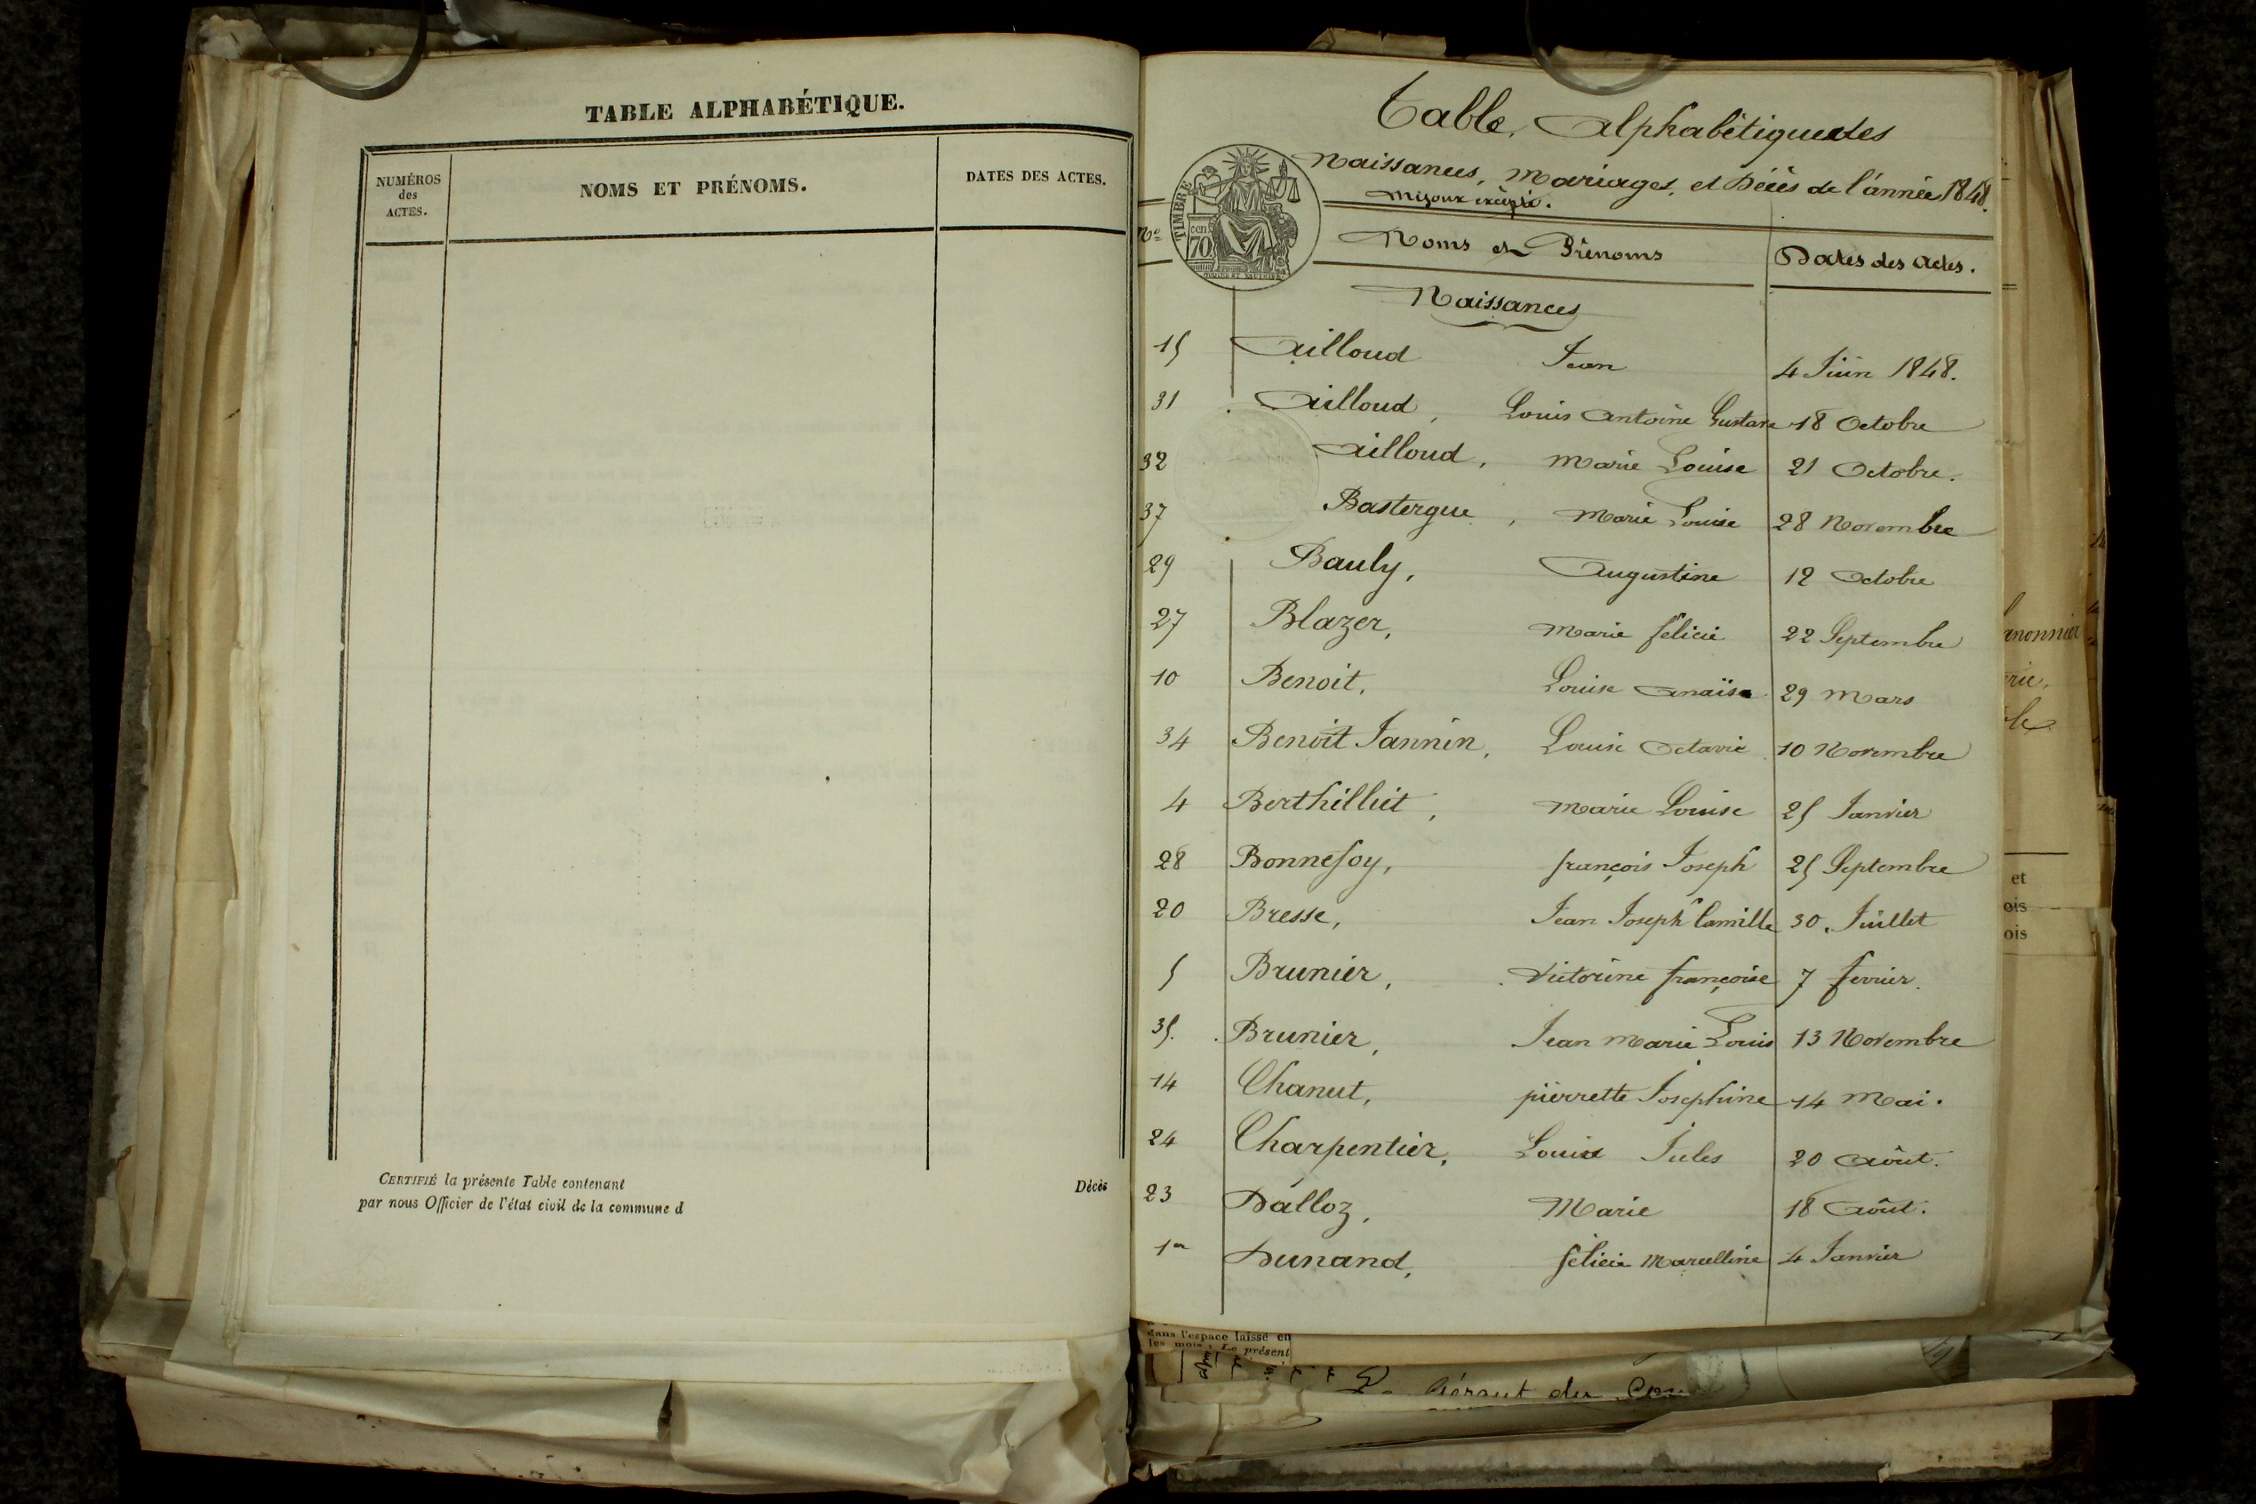 TABLE ALPHABÉTIQUE.
NUMÉROS
des
ACTES.
NOMS ET PRÉNOMS.
DATES DES ACTES.
CERTIFIÉ la présente Table contenant
Décès
par nous Officier de l'état civil de la commune d
Table Alphabétique des
Naissances, Mariages, et Décès de l'année 1848.
Mijoux excepté.
TIMBRE
cen
70
No
Noms et Prénoms
Dates des Actes.
Naissances
15 Ailloud Jean 4 Juin 1848.
31 Ailloud, Louis Antoine Gustave 18 Octobre
32 Ailloud, Marie Louise 21 Octobre.
37 Bastergue, Marie Louise 28 Novembre
29 Bauly, Augustine 12 Octobre
27 Blazer, Marie félicie 22 Septembre
10 Benoit, Louise Anaïse 29 Mars
34 Benoit Jannin, Louise Octavie 10 Novembre
4 Berthilliet, Marie Louise 25 Janvier
28 Bonnefoy, françois Joseph 25 Septembre
20 Bresse, Jean Joseph Camille 30. Juillet
5 Brunier, Victorine françoise 7 fevrier.
35. Brunier, Jean Marie Louis 13 Novembre
14 Chanut, pierrette Josephine 14 Mai.
24 Charpentier, Louis Jules 20 Août.
23 Dalloz, Marie 18 Août.
1er Dunand, félicie Marcelline 4 Janvier
et
ois
ois
dans l'espace laissé en
les mois : Le présent